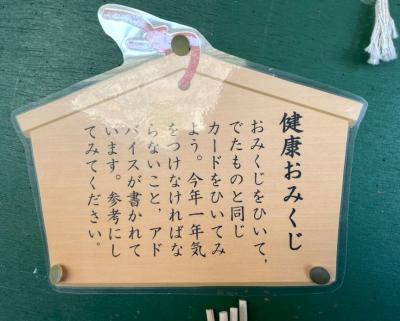 健康おみくじ
おみくじをひいて，
でたものと同じ
カードをひいてみ
よう。今年一年気
をつけなければな
らないこと，アド
バイスが書かれて
います。参考にし
てみてください。